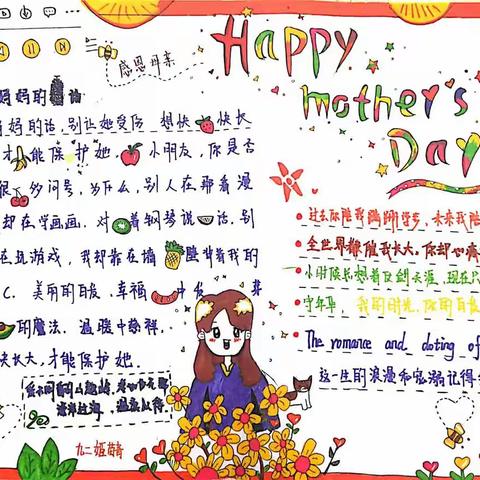 感恩母亲
Happy
mother's
Day
妈妈的话
妈妈的话,别让她受伤 想快快长
才能保护她 小朋友,你是否
很多问号,为什么,别人在那看漫
却在学画画,对着钢琴说话,别
在玩游戏,我却靠在墙壁背着我的
C,美丽的白发,幸福中
的魔法,温暖中慈祥,
快长大,才能保护她.
过去你陪我蹒跚学步,未来我陪
全世界都催我长大,你却心疼
小时候总想着仗剑天涯,现在只
守年华,我的时光,你的白发
The romance and doting of
这一生的浪漫和宠溺记得
九二